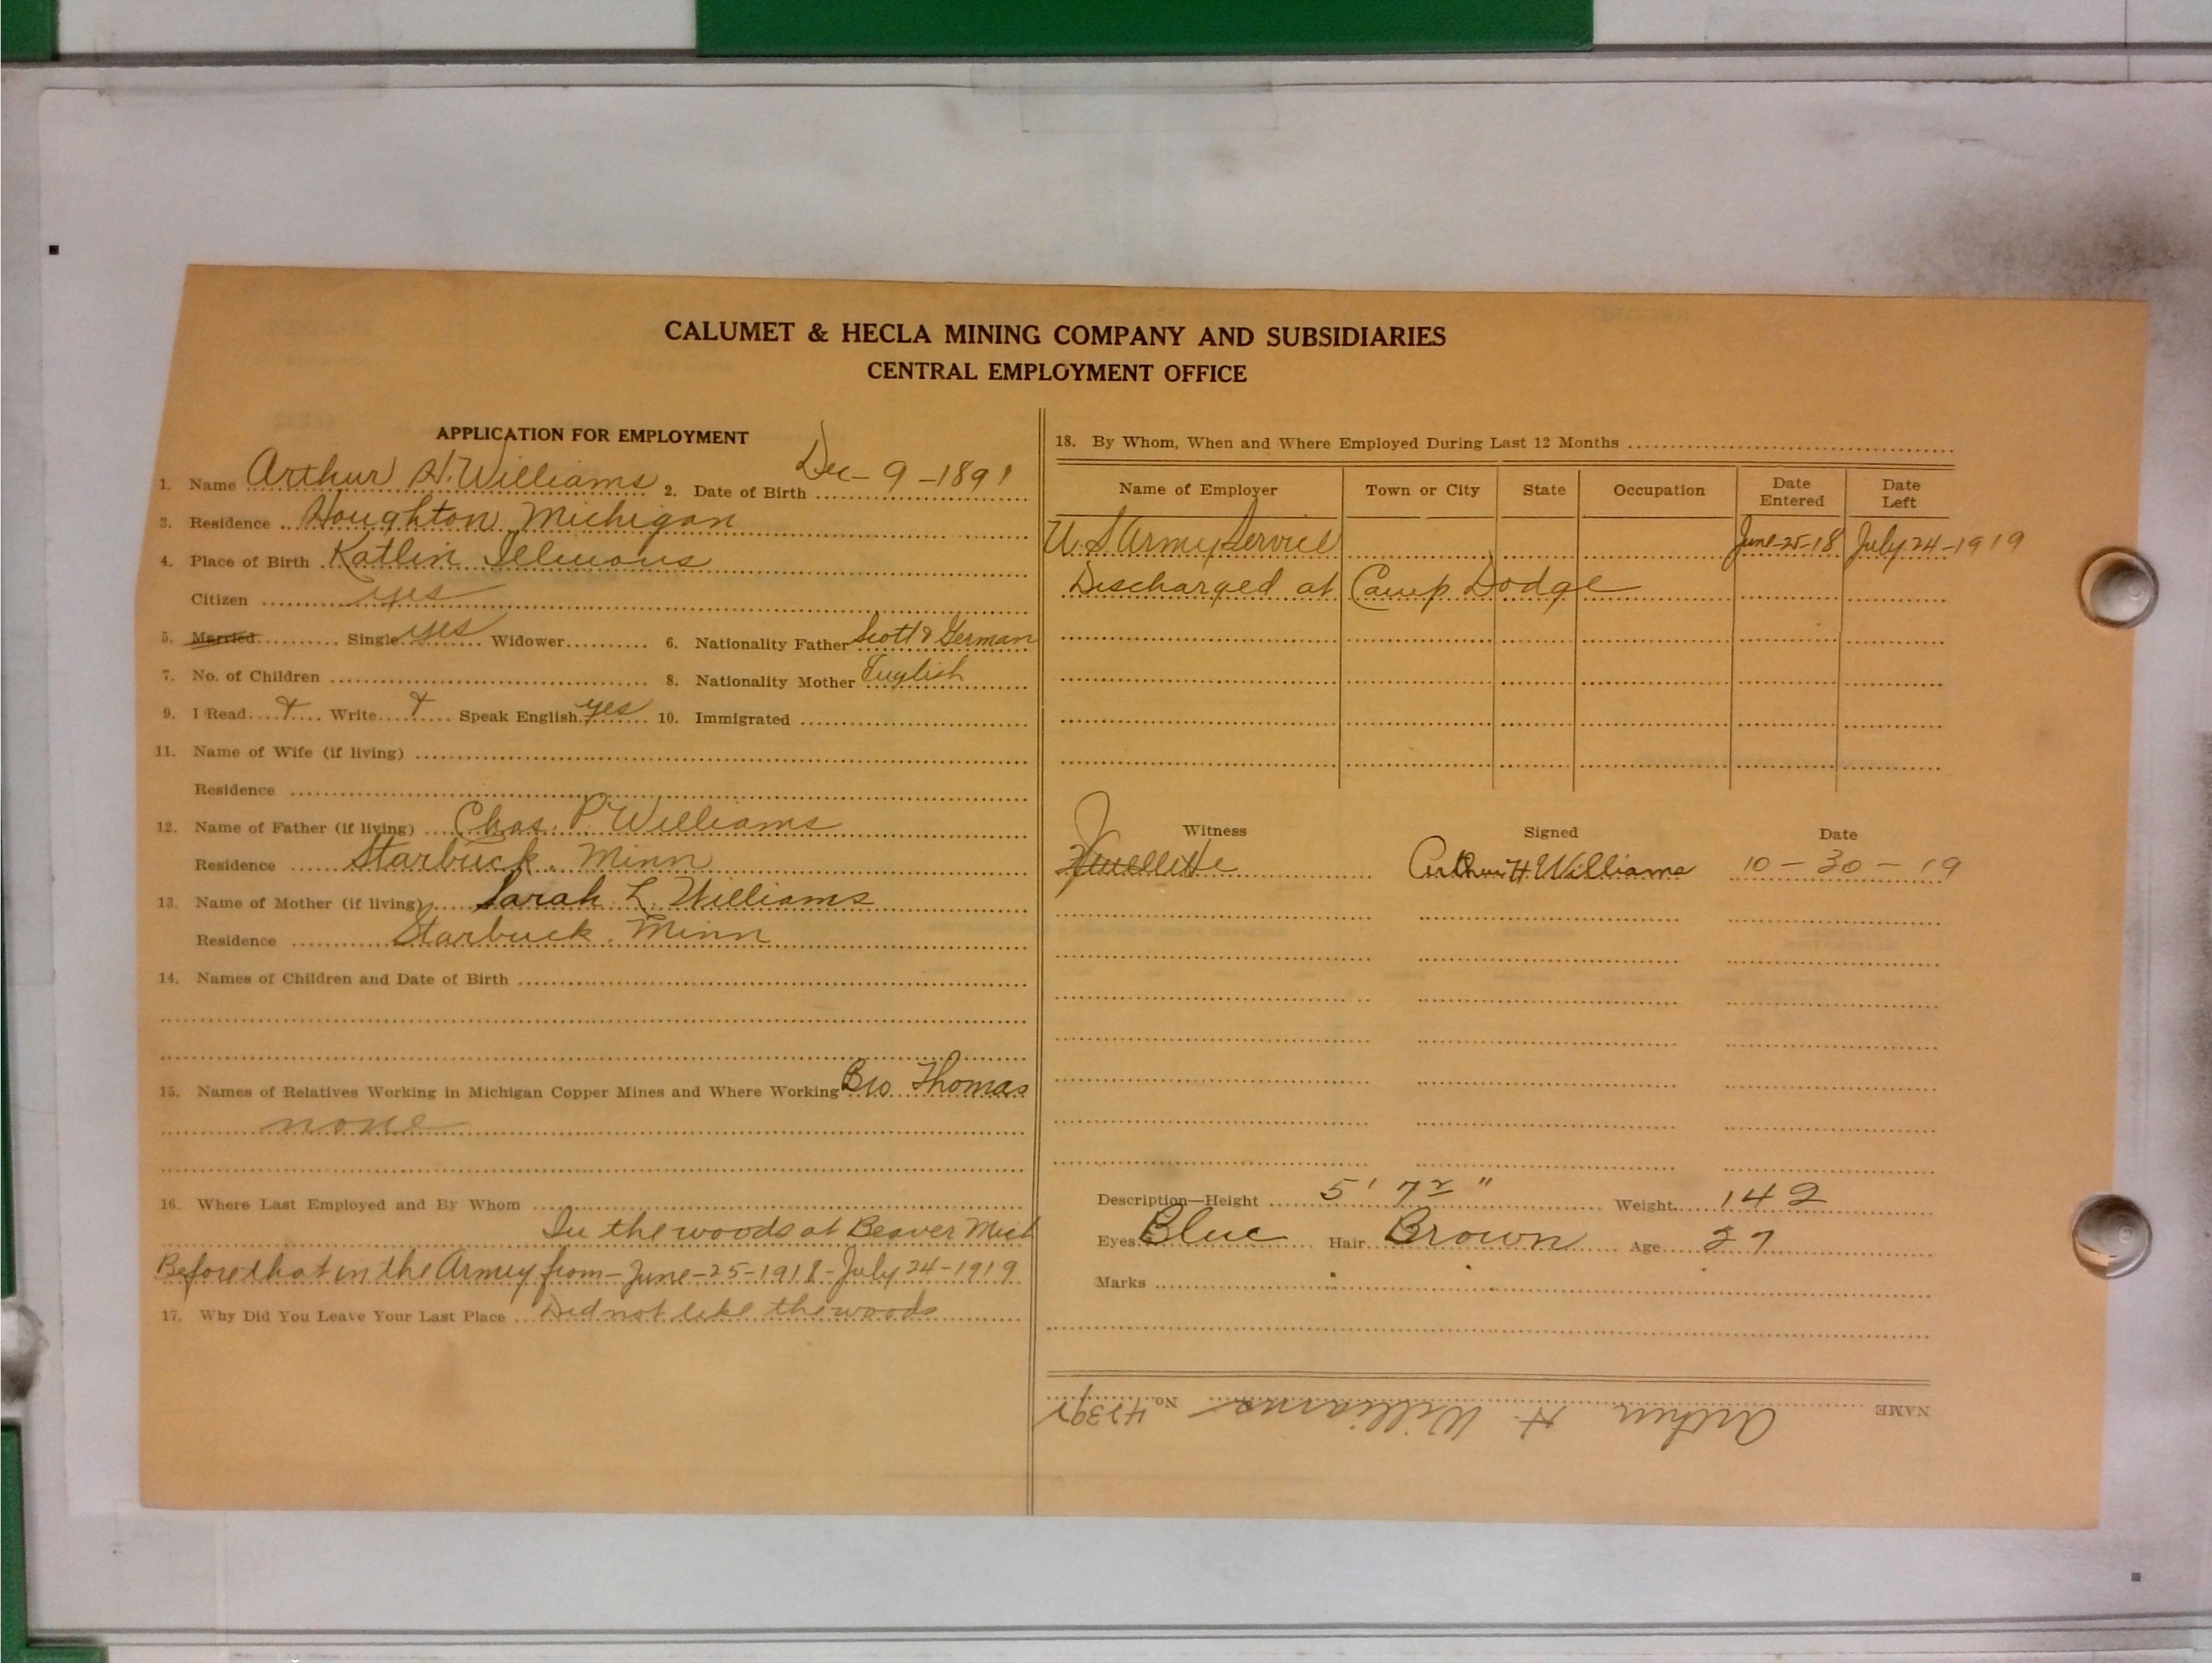 CALUMET & HECLA MINING COMPANY AND SUBSIDIARIES
CENTRAL EMPLOYMENT OFFICE
APPLICATION FOR EMPLOYMENT
1. Name Arthur H. Williams 2. Date of Birth Dec - 9 - 1891
3. Residence Houghton Michigan
4. Place of Birth Katlin Illinois
Citizen yes
5. Married Single yes Widower 6. Nationality Father Scott & German
7. No. of Children 8. Nationality Mother English
9. I Read Write Speak English yes 10. Immigrated
11. Name of Wife (if living)
Residence
12. Name of Father (if living) Chas. P Williams
Residence Starbuck. Minn
13. Name of Mother (if living) Sarah L Williams
Residence Starbuck. Minn
14. Names of Children and Date of Birth
15. Names of Relatives Working in Michigan Copper Mines and Where Working Bro. Thomas
none
16. Where Last Employed and By Whom
In the woods at Beaver Mich
Before that in the Army from - June - 25 - 1918 - July 24 - 1919
17. Why Did You Leave Your Last Place Did not like the woods
18. By Whom, When and Where Employed During Last 12 Months
Name of Employer Town or City State Occupation Date Entered Date Left
U.S Army Service June-25-18 July 24-1919
Discharged at Camp Dodge
Witness Signed Date
Arthur H Williams 10 - 30 - 19
Description—Height 5' 7 2 " Weight 142
Eyes Blue Hair Brown Age 27
Marks
NAME Arthur H Williams No.